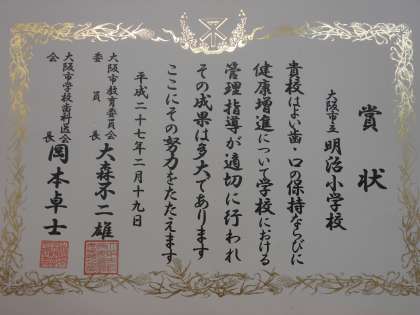 賞状
大阪市立 明治小学校
貴校はよい歯・口の保持ならびに
健康増進について学校における
管理指導が適切に行われ
その成果は多大であります
ここにその努力をたたえます
平成二十七年二月十九日
大阪市教育委員会
委員長 大森不二雄
大阪市学校歯科医会
会長 岡本卓士